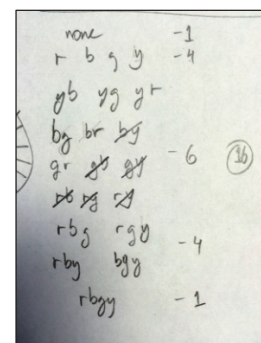 none -1
r b g y -4
yb yg yr
bg br by
gr gb gy -6 16
rb rg ry
rbg rgy
-4
rby bgy
rbgy -1